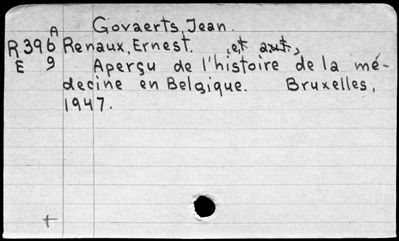 A Govaerts, Jean.
R396 Renaux, Ernest. , et aut.,
E 9 Aperçu de l'histoire de la mé-
decine en Belgique. Bruxelles,
1947.
+